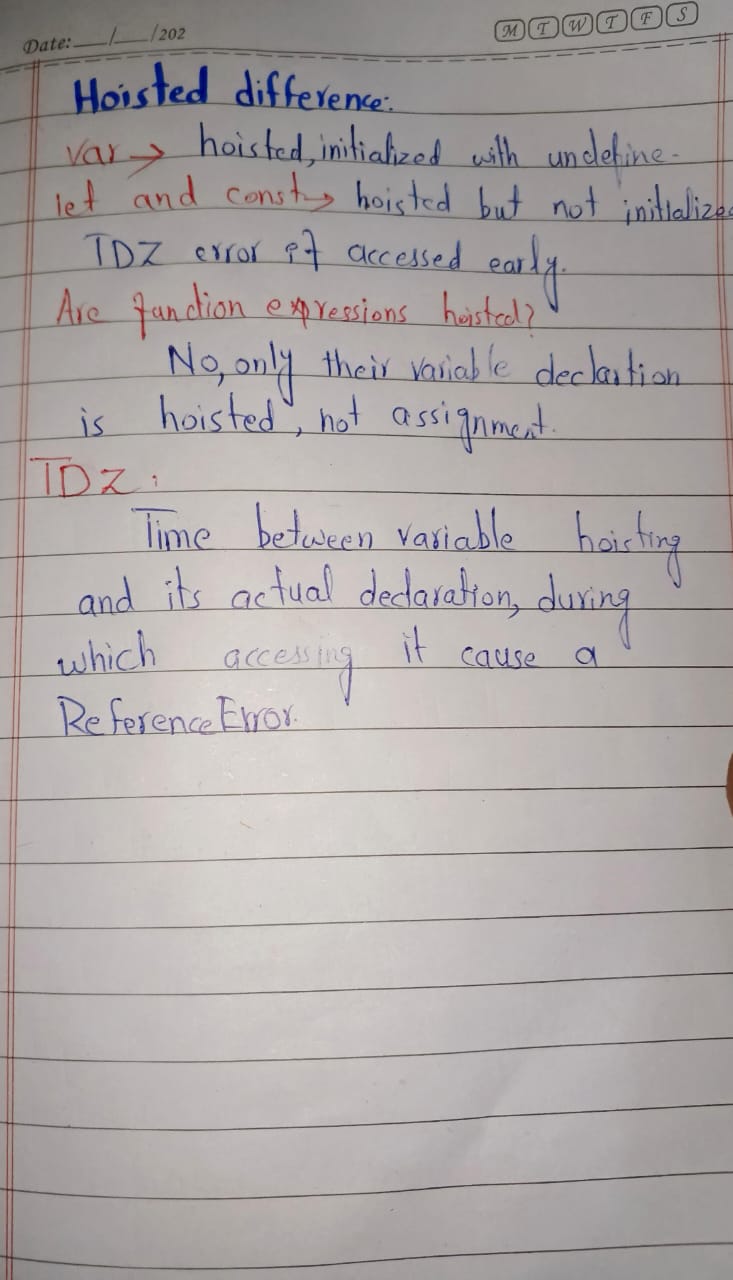 Date: __/__/202 M T W T F S
Hoisted difference:
var → hoisted, initialized with undefine.
let and const → hoisted but not initialized
TDZ error if accessed early.
Are function expressions hoisted?
No, only their variable declartion
is hoisted, not assignment.
TDZ:
Time between variable hoisting
and its actual declaration, during
which accessing it cause a
ReferenceError.